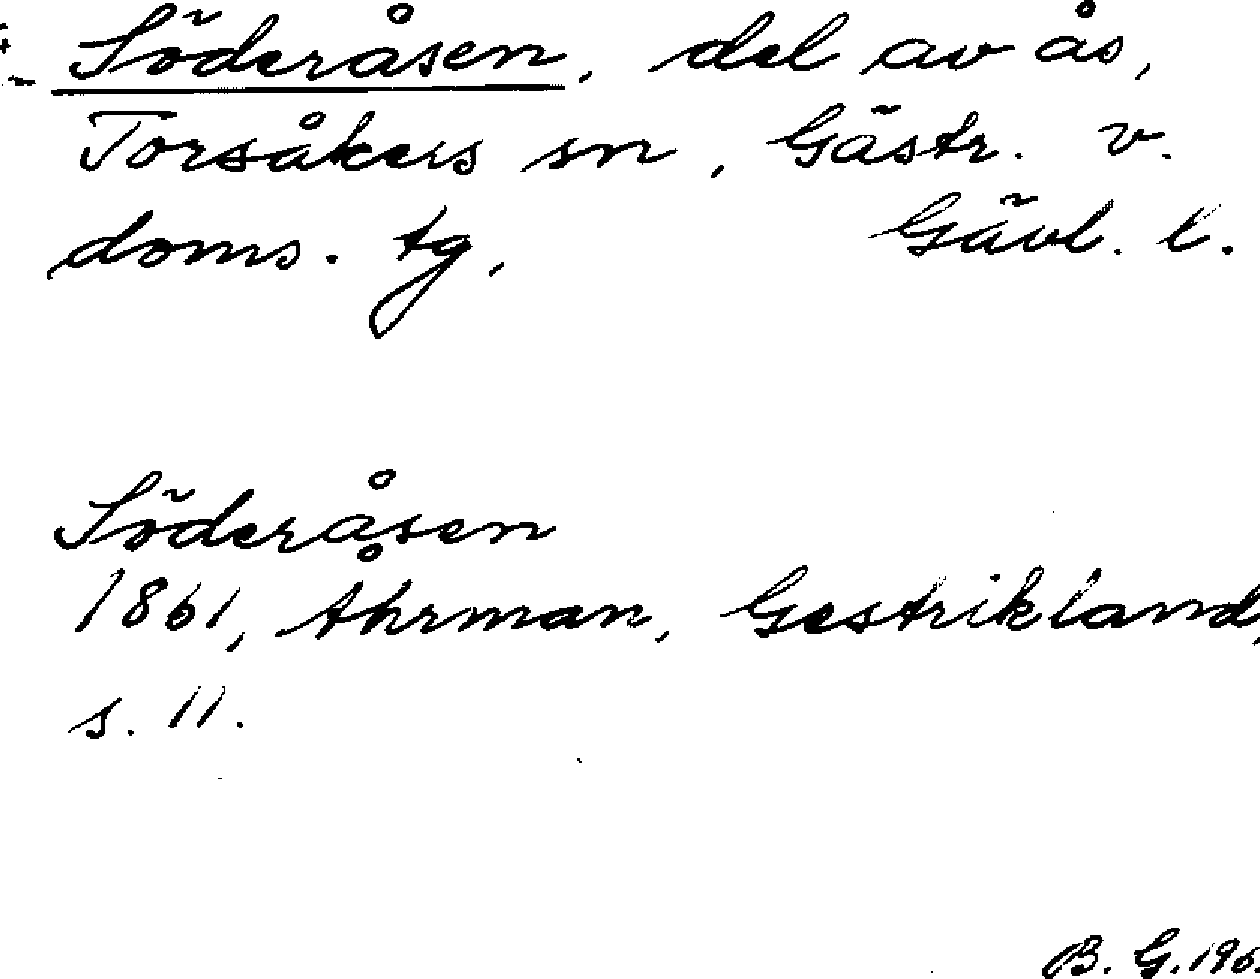 Söderåsen, del av ås,
Torsåkers sn, Gästr. v.
doms. tg, Gävl. l.
Söderåsen
1861, Åhrman, Gestrikland,
s. 11.
B. G. 196